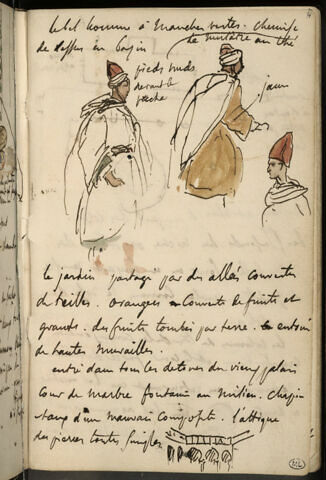 le bel homme à Manches vertes. Chemise
de dessus en basin
le mulâtre au thé
pieds nuds
devant le
jaune
le jardin partagé par des allées couvertes
de treilles. orangers couverts de fruits et
grands. des fruits tombés par terre. entouré
de hautes murailles.
entré dans tous les détours du vieux palais
Cour de marbre fontaine au milieu.
d'un mauvais composite. l'attique
des pierres toutes simples
ML
4